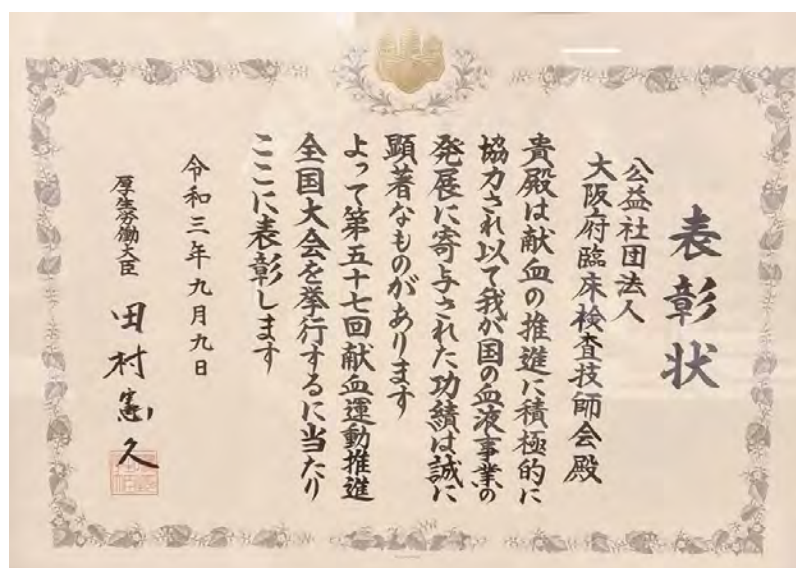 表彰状
公益社団法人
大阪府臨床検査技師会殿
貴殿は献血の推進に積極的に
協力され以て我が国の血液事業の
発展に寄与された功績は誠に
顕著なものがあります
よって第五十七回献血運動推進
全国大会を挙行するに当たり
ここに表彰します
令和三年九月九日
厚生労働大臣 田村憲久